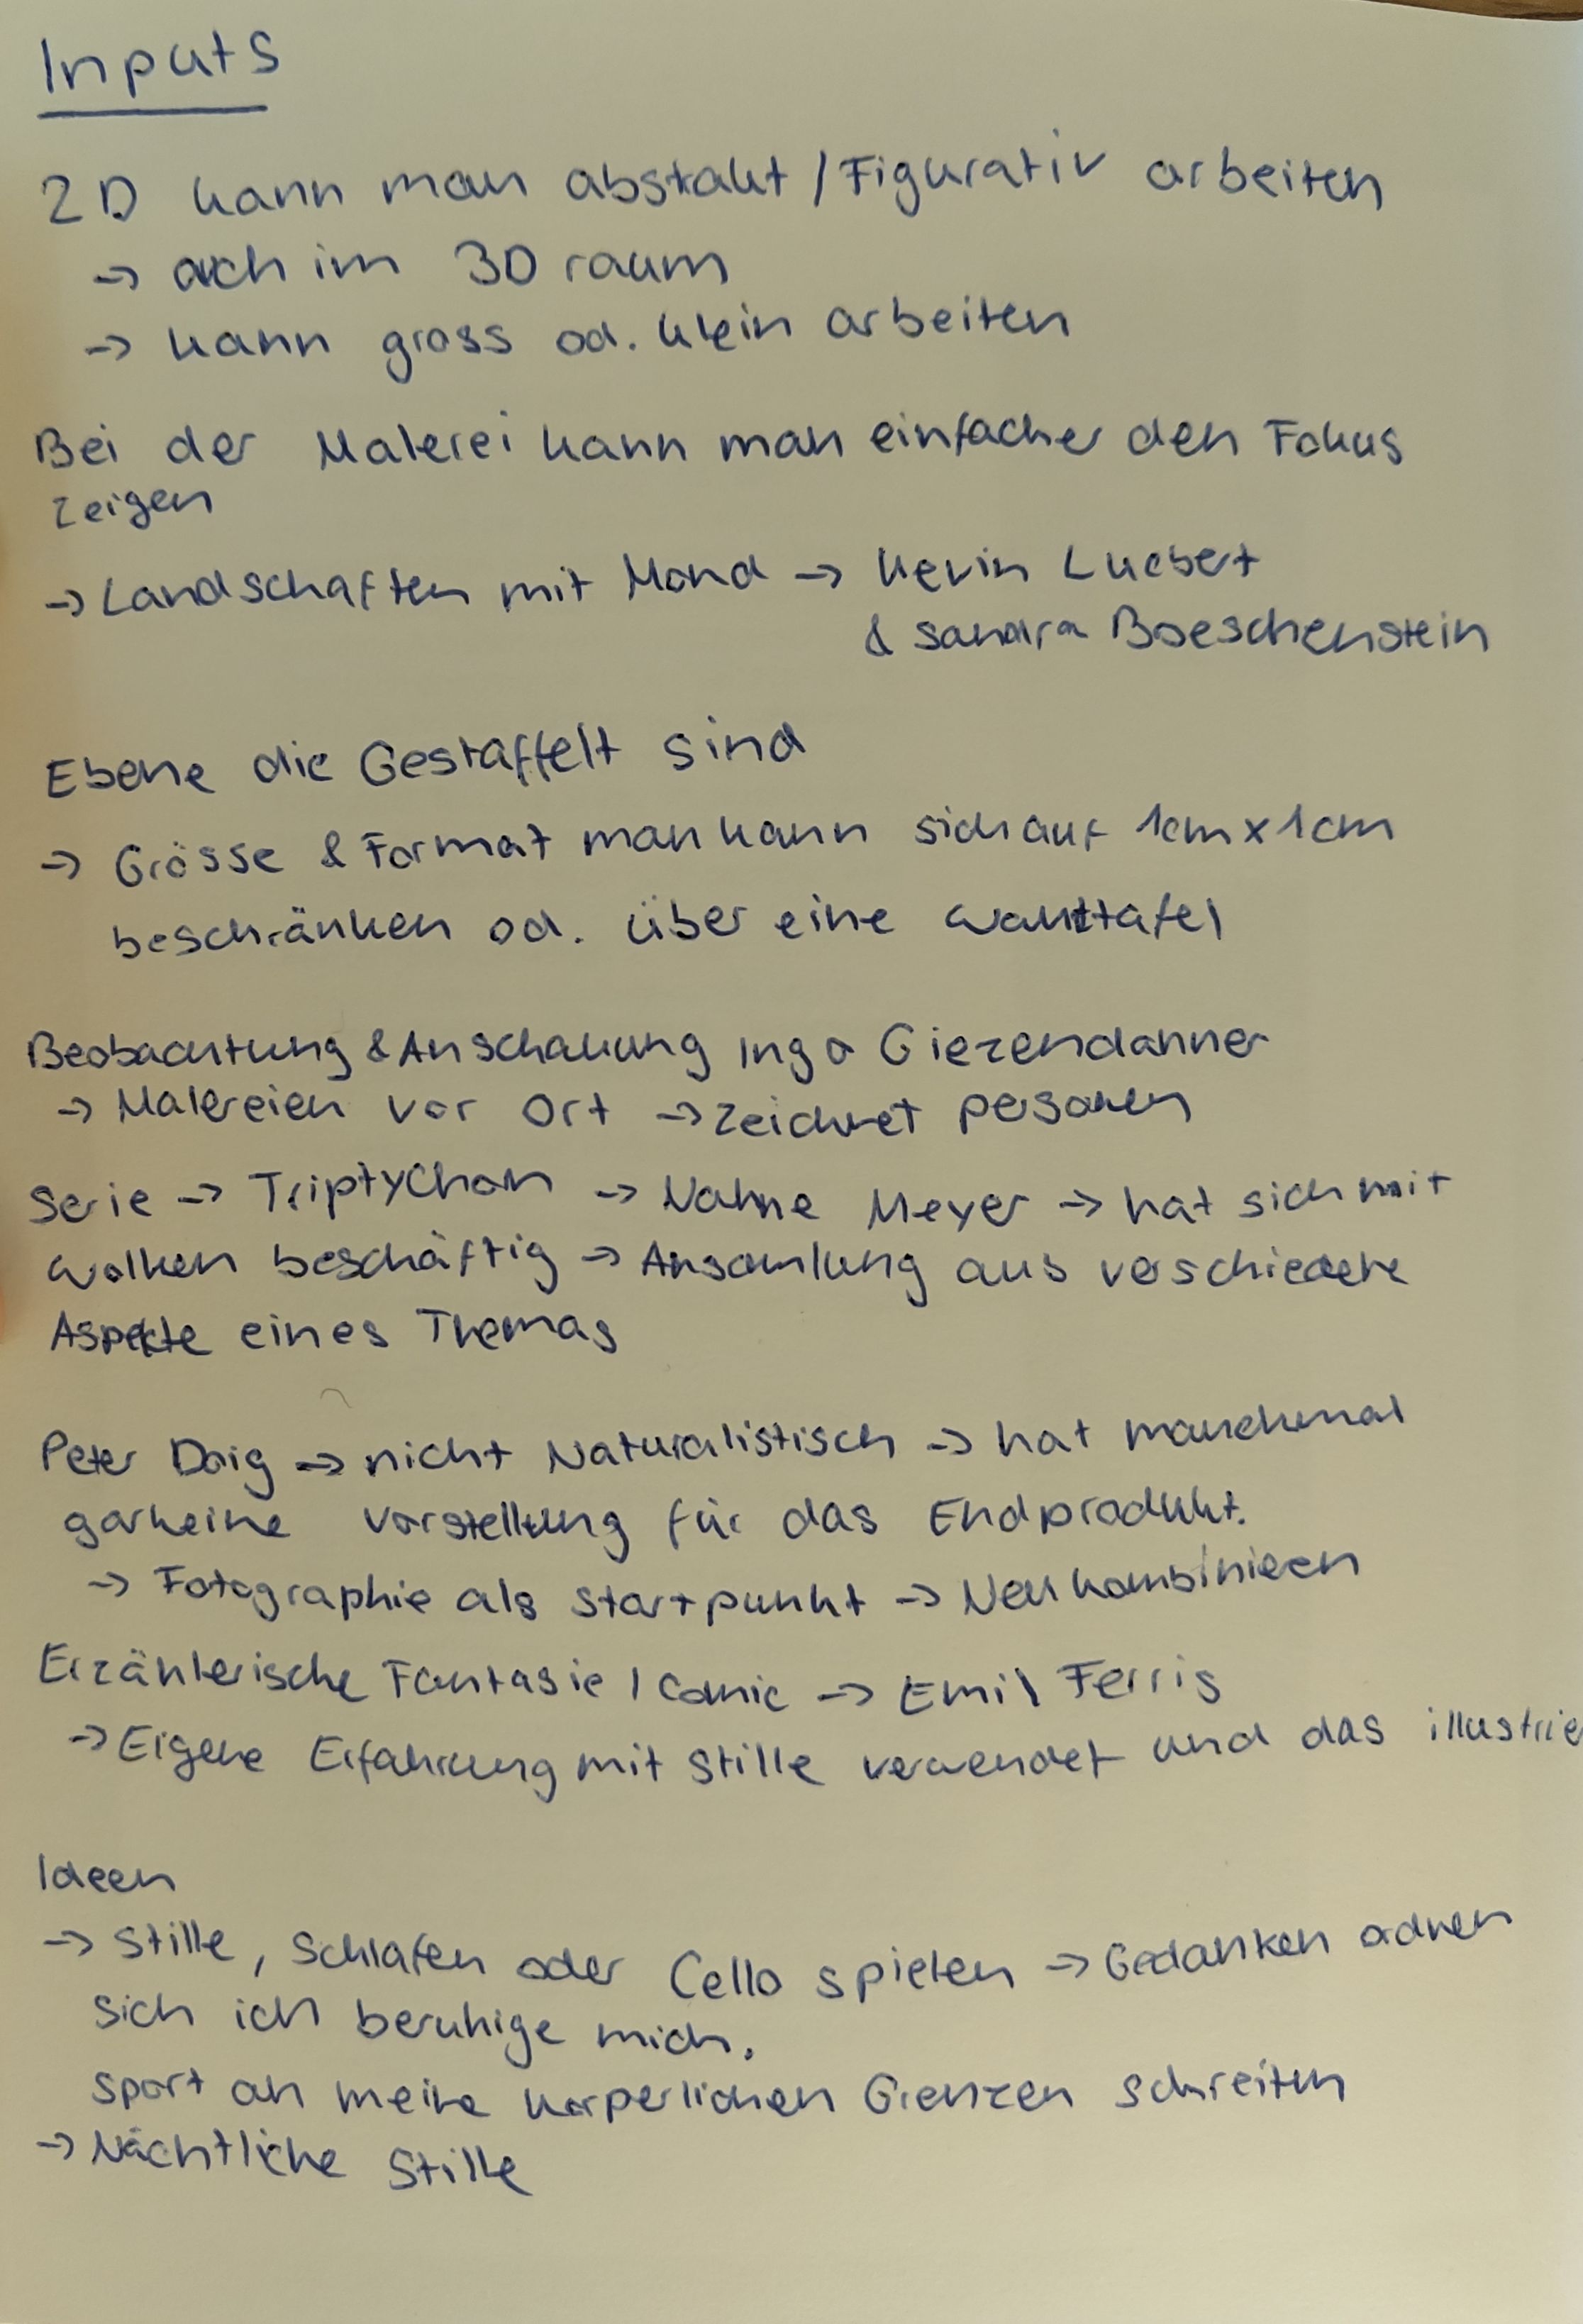 Inputs
2D kann man abstrakt / Figurativ arbeiten
→ auch im 3D raum
→ kann gross od. klein arbeiten
Bei der Malerei kann man einfacher den Fokus
zeigen
→ Landschaften mit Mond → Kevin Luebert
& Sandra Boeschenstein
Ebene die Gestaffelt sind
→ Grösse & Format man kann sich auf 1cm x 1cm
beschränken od. über eine
Beobachtung & Anschauung Ingo Giezendanner
→ Malereien vor Ort → zeichnet personen
Serie → Triptychon → Nahne Meyer → hat sich mit
Wolken beschäftig → Ansamlung aus verschiedene
Aspekte eines Themas
Peter Doig → nicht Naturalistisch → hat manchmal
garkeine Vorstellung für das Endprodukt.
→ Fotographie als Startpunkt → Neu kombinieren
Erzählerische Fantasie / Comic → Emil Ferris
→ Eigene Erfahrung mit Stille verwendet und das illustrie
Ideen
→ Stille, Schlafen oder Cello spielen → Gedanken
sich ich beruhige mich.
Sport an meine körperlichen Grenzen schreiten
→ Nächtliche Stille